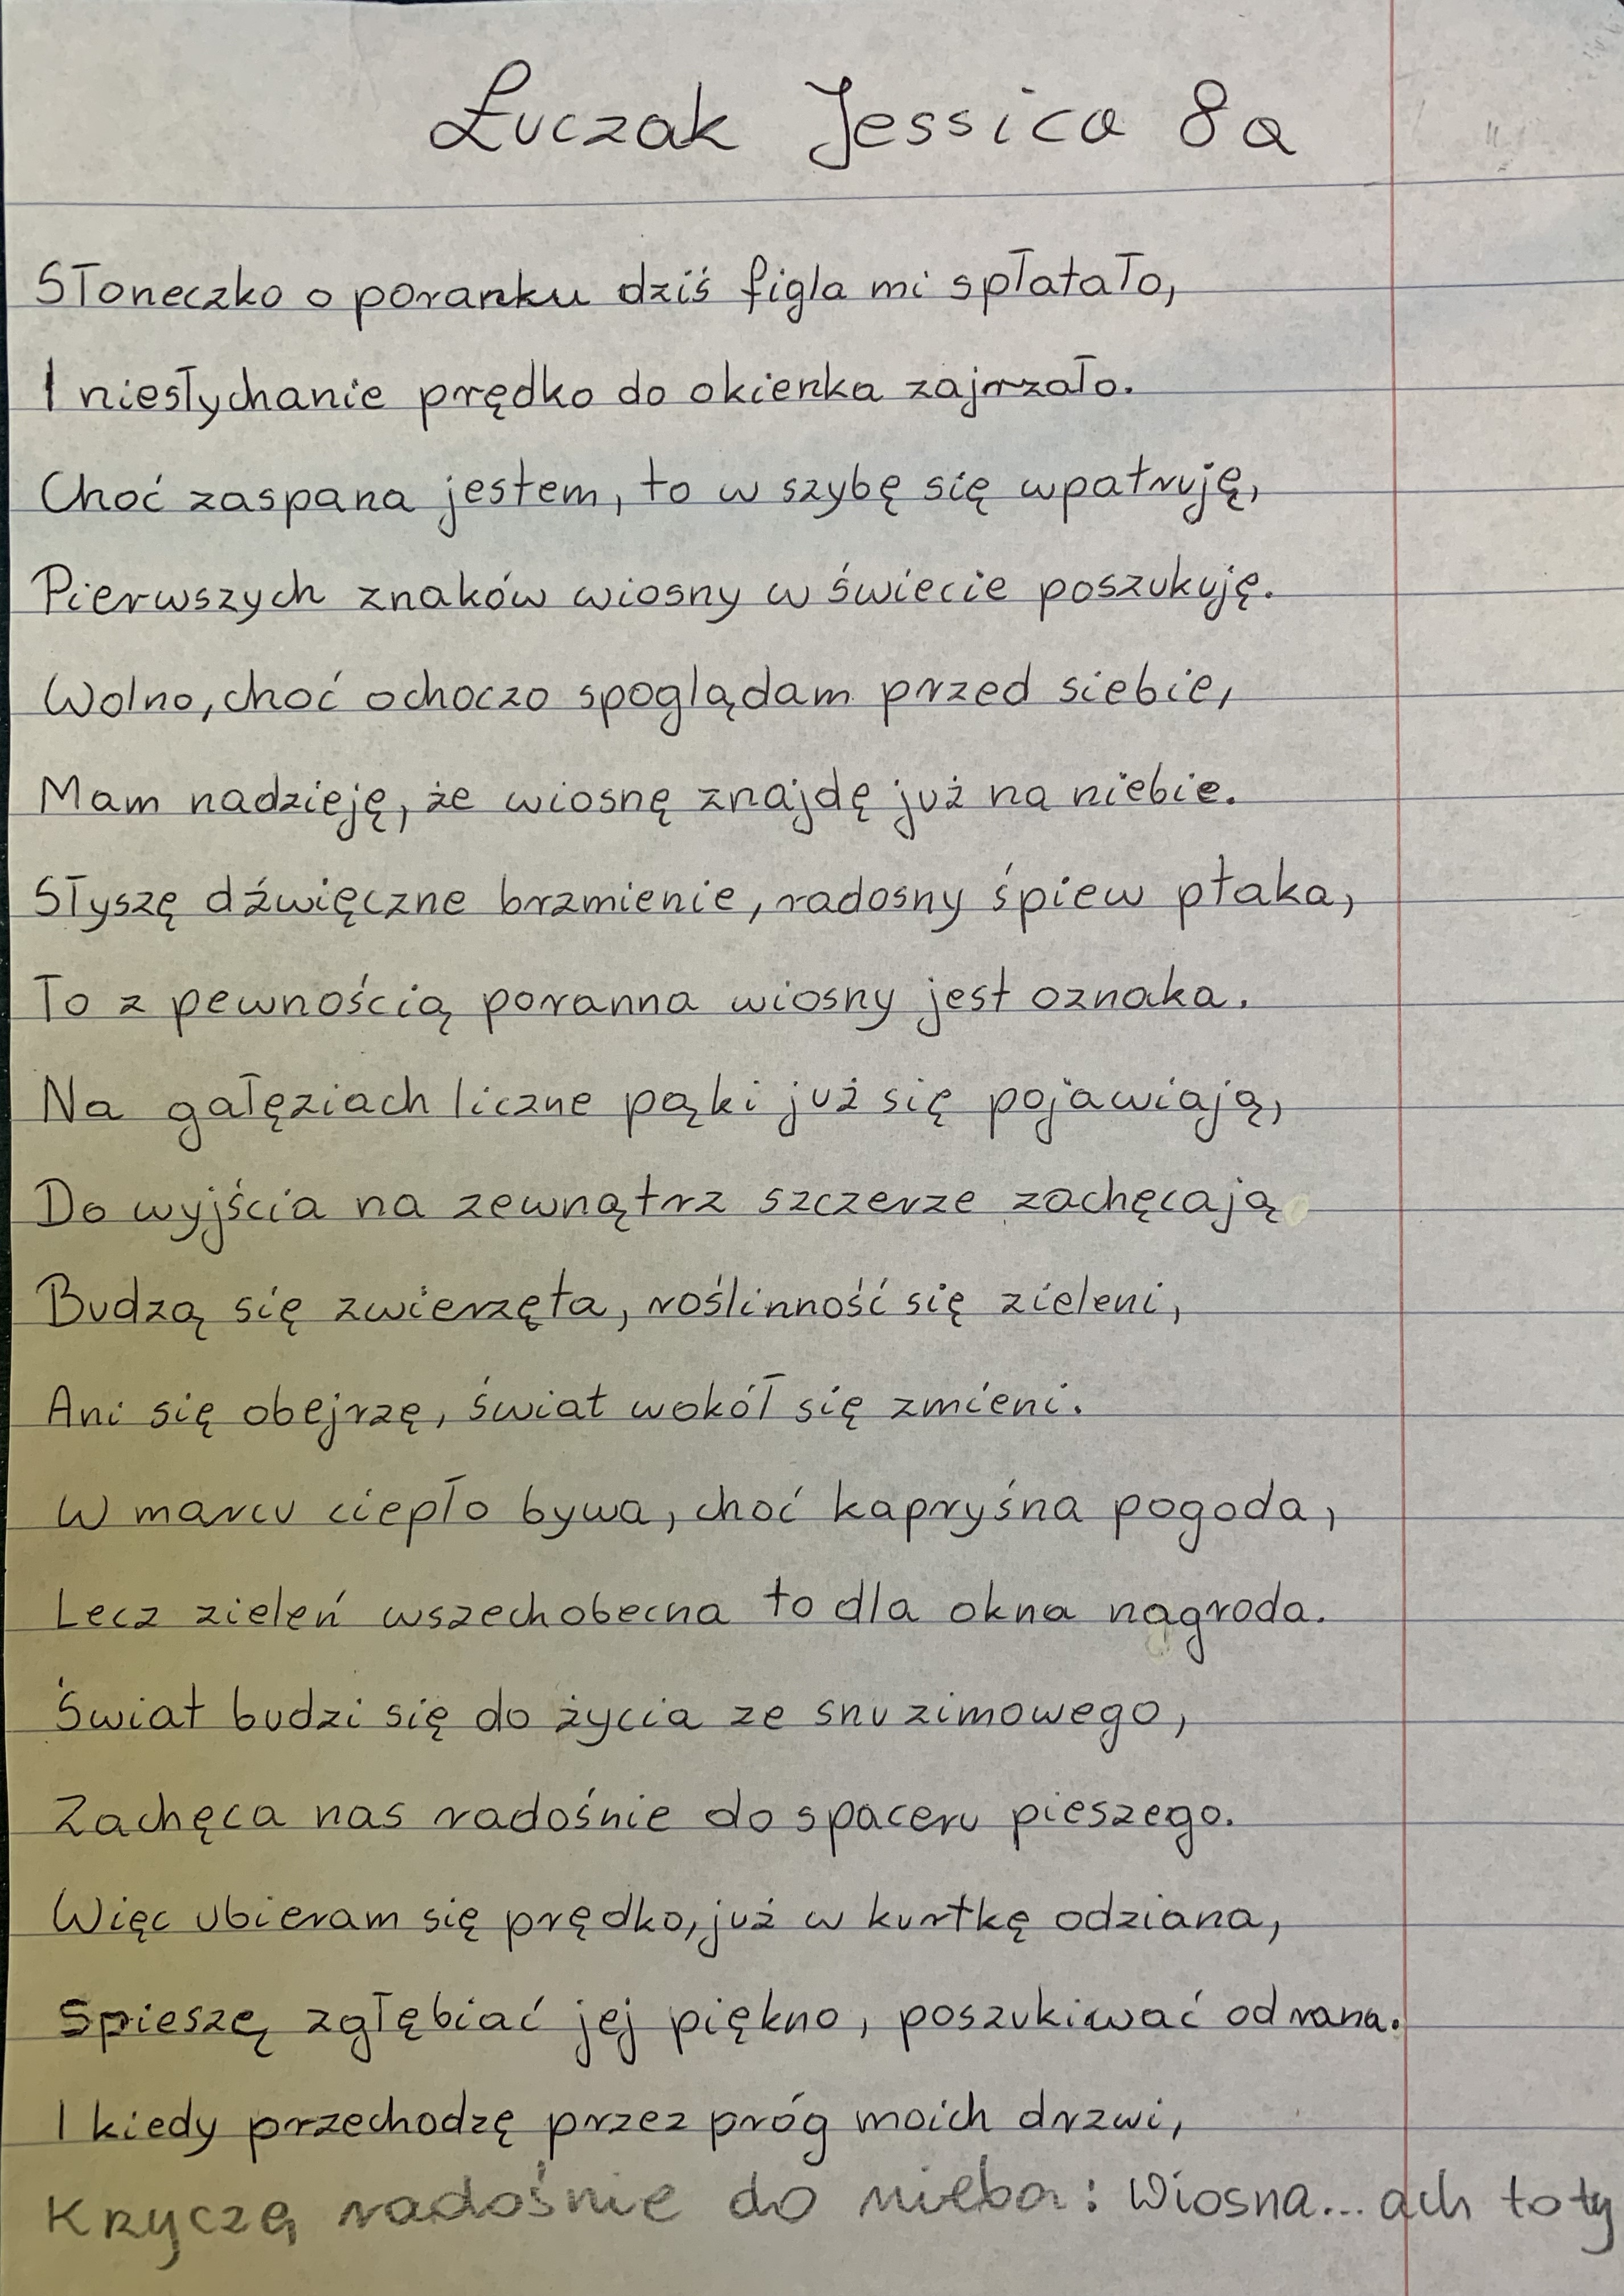 Łuczak Jessica 8a
Słoneczko o poranku dziś figla mi spłatało,
I niesłychanie prędko do okienka zajrzało.
Choć zaspana jestem, to w szybę się wpatruję,
Pierwszych znaków wiosny w świecie poszukuję.
Wolno, choć ochoczo spoglądam przed siebie,
Mam nadzieję, że wiosnę znajdę już na niebie.
Słyszę dźwięczne brzmienie, radosny śpiew ptaka,
To z pewnością poranna wiosny jest oznaka.
Na gałęziach liczne pąki już się pojawiają,
Do wyjścia na zewnątrz szczerze zachęcają
Budzą się zwierzęta, roślinność się zieleni,
Ani się obejrzę, świat wokół się zmieni.
W marcu ciepło bywa, choć kapryśna pogoda,
Lecz zieleń wszechobecna to dla okna nagroda.
Świat budzi się do życia ze snu zimowego,
Zachęca nas radośnie do spaceru pieszego.
Więc ubieram się prędko, już w kurtkę odziana,
Spieszę zgłębiać jej piękno, poszukiwać od rana.
I kiedy przechodzę przez próg moich drzwi,
Krzyczę radośnie do nieba: Wiosna... ach to ty